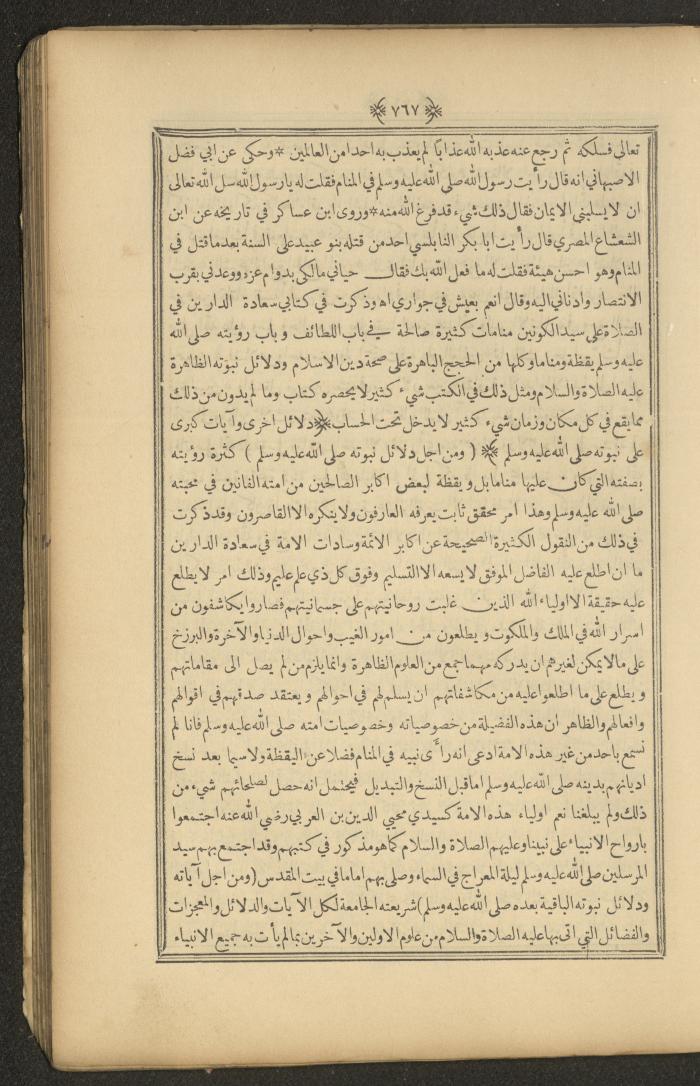 ﴿ ٧٦٧ ﴾
تعالى فسلكه ثم رجع عنه عذبه الله عذابًا لم يعذب به احدا من العالمين * وحكى عن ابي فضل
الاصبهاني انه قال رأيت رسول الله صلى الله عليه وسلم في المنام فقلت له يا رسول الله سل الله تعالى
ان لا يسلبني الايمان فقال ذلك شيء قد فرغ الله منه * وروى ابن عساكر في تاريخه عن ابن
الشعشاع المصري قال رأيت ابا بكر النابلسي احد من قتله بنو عبيد على السنة بعد ما قتل في
المنام وهو احسن هيئة فقلت له ما فعل الله بك فقال حباني مالكي بدوام عز ووعدني بقرب
الانتصار وادناني اليه وقال انعم بعيش في جواري اه وذكرت في كتابي سعادة الدارين في
الصلاة على سيد الكونين منامات كثيرة صالحة في باب اللطائف وباب رؤيته صلى الله
عليه وسلم يقظة ومناما وكلها من الحجج الباهرة على صحة دين الاسلام ودلائل نبوته الظاهرة
عليه الصلاة والسلام ومثل ذلك في الكتب شيء كثير لا يحصره كتاب وما لم يدون من ذلك
مما يقع في كل مكان وزمان شيء كثير لا يدخل تحت الحساب ﴿ دلائل اخرى وآيات كبرى
على نبوته صلى الله عليه وسلم ﴾ ( ومن اجل دلائل نبوته صلى الله عليه وسلم ) كثرة رؤيته
بصفته التي كان عليها مناما بل ويقظة لبعض اكابر الصالحين من امته الفانين في محبته
صلى الله عليه وسلم وهذا امر محقق ثابت يعرفه العارفون ولا ينكره الا القاصرون وقد ذكرت
في ذلك من النقول الكثيرة الصحيحة عن اكابر الائمة وسادات الامة في سعادة الدارين
ما ان اطلع عليه الفاضل الموفق لا يسعه الا التسليم وفوق كل ذي علم عليم وذلك امر لا يطلع
عليه حقيقة الا اولياء الله الذين غلبت روحانيتهم على جسمانيتهم فصاروا يكاشفون من
اسرار الله في الملك والملكوت ويطلعون من امور الغيب واحوال الدنيا والآخرة والبرزخ
على ما لا يمكن لغيرهم ان يدركه مهما جمع من العلوم الظاهرة وانما يلزم من لم يصل الى مقاماتهم
ويطلع على ما اطلعوا عليه من مكاشفاتهم ان يسلم لهم في احوالهم ويعتقد صدقهم في اقوالهم
وافعالهم والظاهر ان هذه الفضيلة من خصوصياته وخصوصيات امته صلى الله عليه وسلم فانا لم
نسمع باحد من غير هذه الامة ادعى انه رأى نبيه في المنام فضلا عن اليقظة ولا سيما بعد نسخ
اديانهم بدينه صلى الله عليه وسلم اما قبل النسخ والتبديل فيحتمل انه حصل لصلحائهم شيء من
ذلك ولم يبلغنا نعم اولياء هذه الامة كسيدي محيي الدين بن العربي رضي الله عنه اجتمعوا
بارواح الانبياء على نبينا وعليهم الصلاة والسلام كما هو مذكور في كتبهم وقد اجتمع بهم سيد
المرسلين صلى الله عليه وسلم ليلة المعراج في السماء وصلى بهم اماما في بيت المقدس ( ومن اجل آياته
ودلائل نبوته الباقية بعده صلى الله عليه وسلم ) شريعته الجامعة لكل الآيات والدلائل والمعجزات
والفضائل التي اتى بها عليه الصلاة والسلام من علوم الاولين والآخرين بما لم يأت به جميع الانبياء